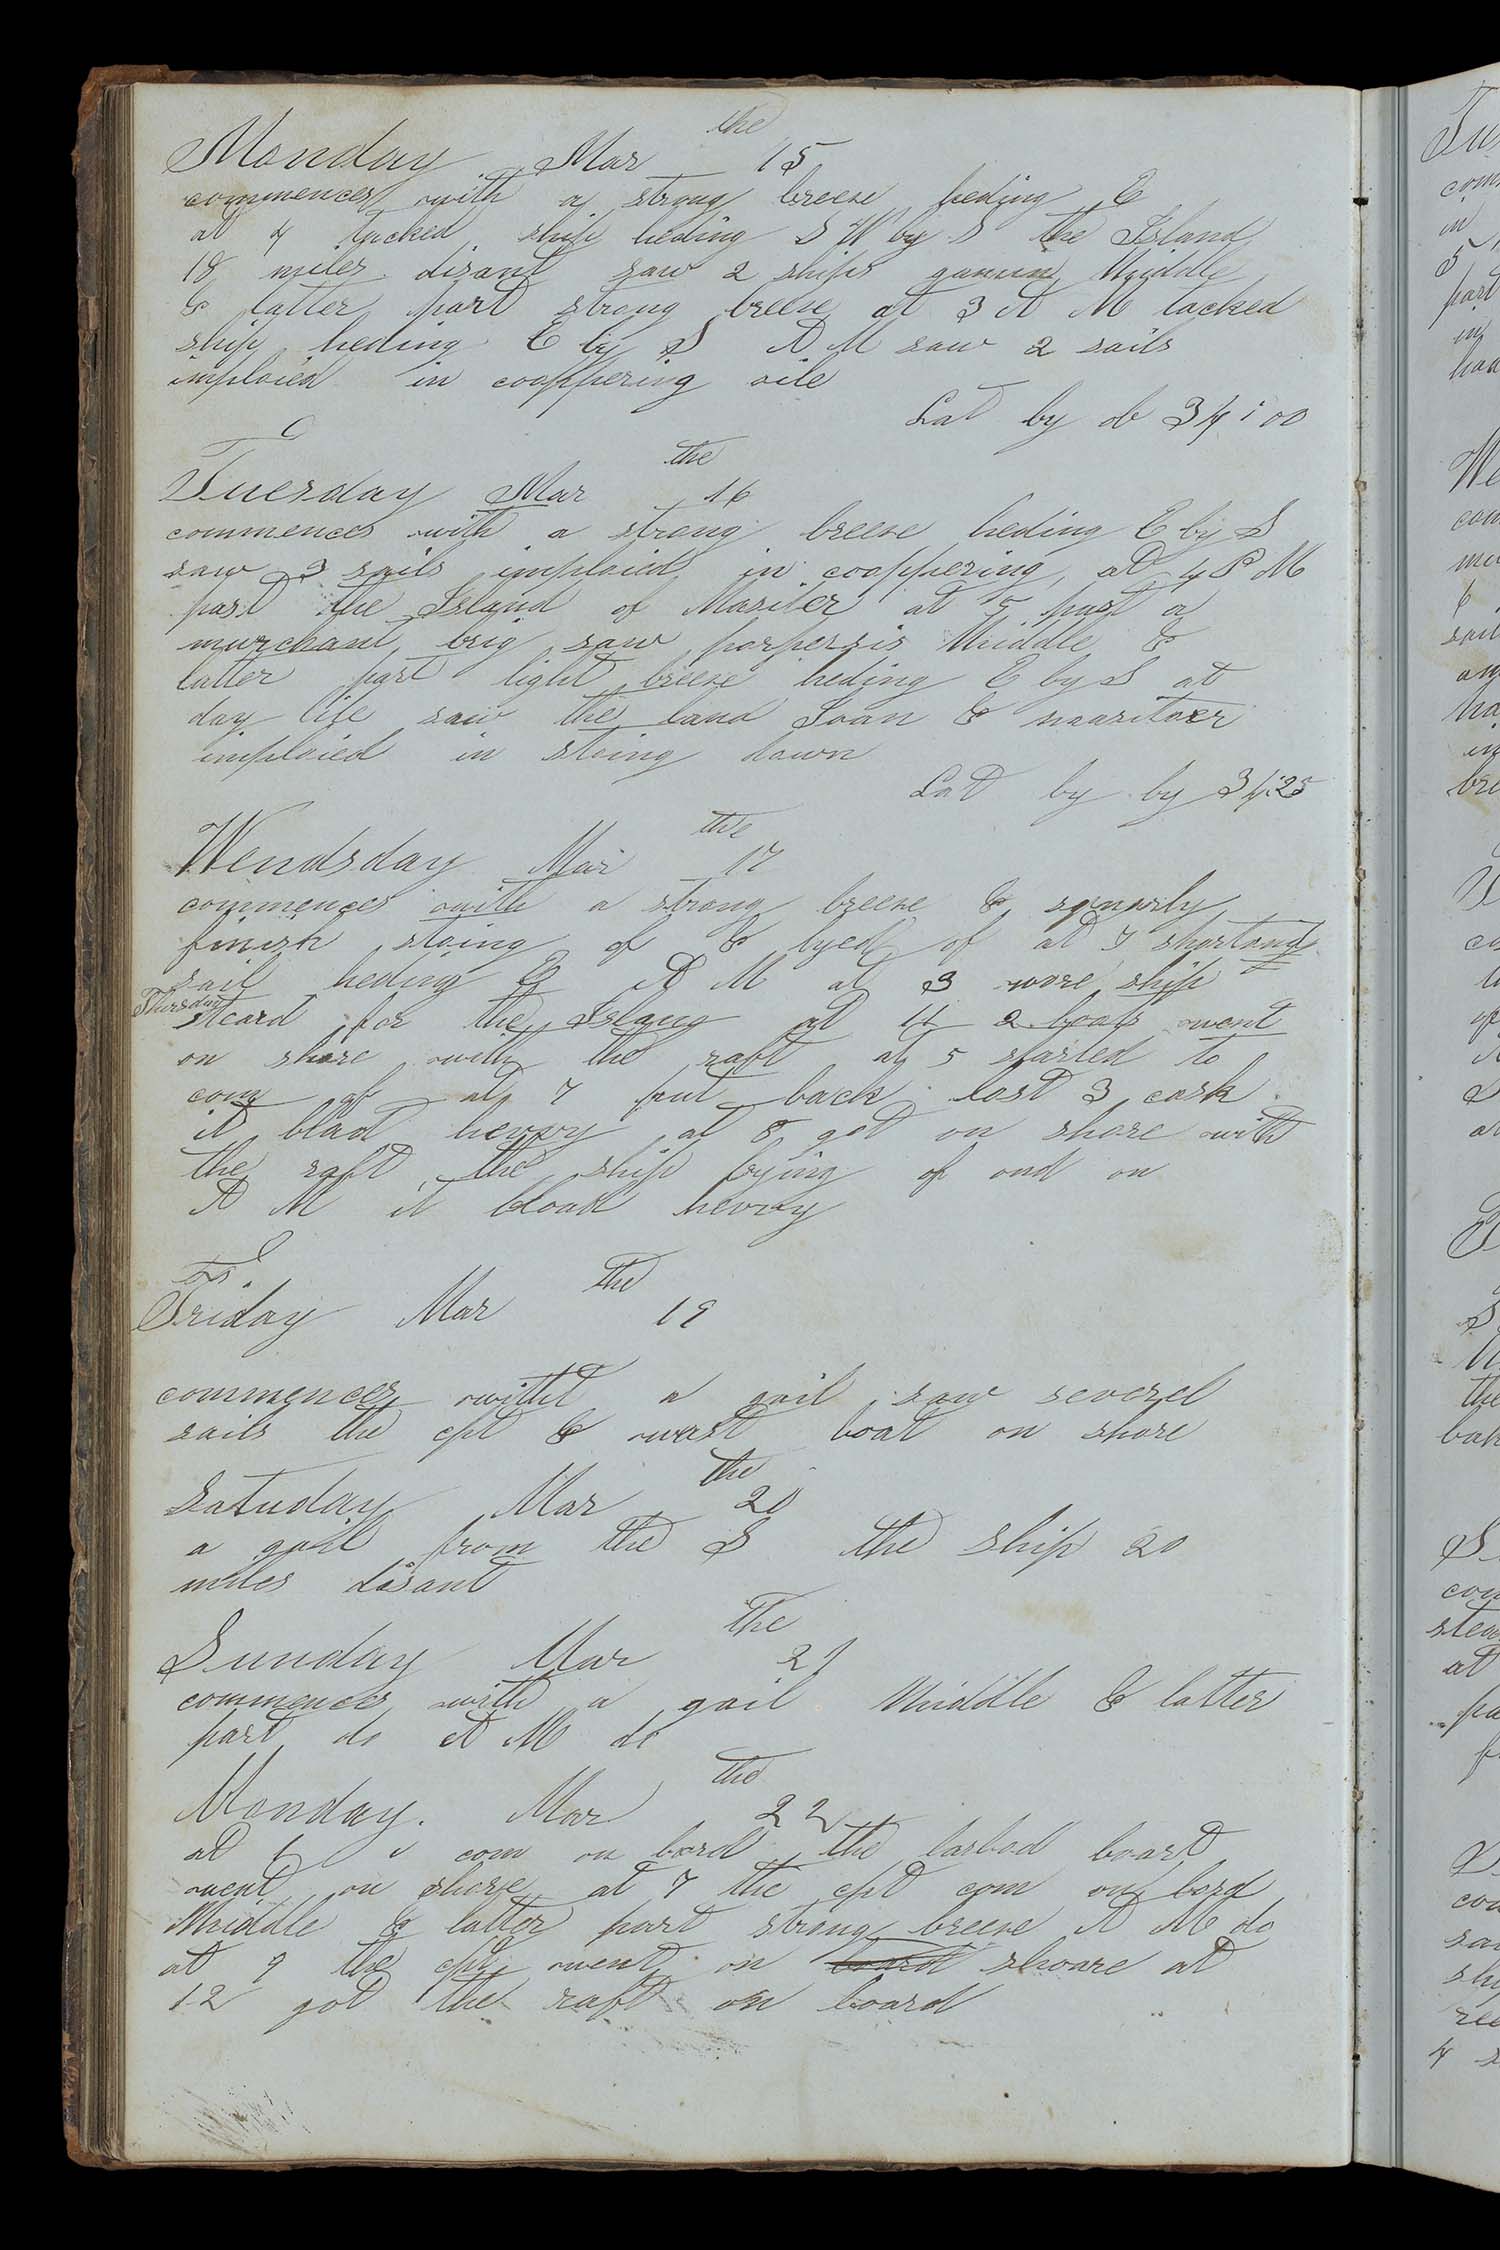 Monday Mar the 15
commences with a strong breese heding E
at 4 tacked ship heding S W by S the Island
18 miles disant saw 2 ships Middle
& latter part strong breese at 3 A M tacked
ship heding E by S A M saw 2 sails
imploied in coopering oile
Lat by ob 34:00
Tuesday Mar the 16
commences with a strong breese heding E by S
saw 3 sails imploied in coopering at 4 P M
past the Island of at 5 past a
murchant brig saw porpersis Middle &
latter part light breese heding E by S at
day lite saw the land &
imploied in stoing down
Lat by by 34:25
Wendsday Mar the 17
commences with a strong breese &
finish stoing of & of at 7 shortand
sail heding E A M at 3 wore ship
Thursday
steard for the Island at 11 2 boats went
on shore with the raft at 5 started to
com of at 7 put back lost 3 cask
it hevvy at 8 got on shore with
the raft the ship lying of and on
A M it hevvy
Fr.
Friday Mar the 19
commences witht a gail saw severel
sails the cpt & boat on shore
Satuday Mar the 20
a gail from the S the ship 20
miles disant
Sunday Mar The 21
commences with a gail Middle & latter
part do A M do
Monday. Mar the 22
at 6 com on bord the larbod boart
went on shore at 7 the cpt com on bord
Middle & latter part strong breese A M do
at 9 the cpt went on board shoare at
12 got the raft on board
4